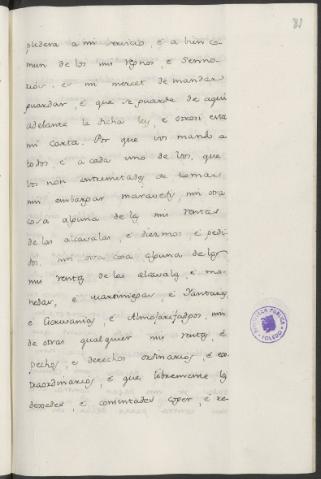 81
plidera a mi servicio, e a bien co-
mun de los mis Regnos, e Senno-
rios. e mi mercet de mandar
guardar, e que se guarde de aqui
adelante la dicha ley, e otrosi esta
mi carta. Por que vos mando a
todos, e a cada uno de vos, que
vos non entremetades de tomar
nin embargar maravedis, nin otra
cosa alguna de las mis rentas
de las alcavalas, e diezmos e pedi-
dos. nin otra cosa alguna de las
mis rentas de las alcavalas, e mo-
nedas, e martiniegas, e Yantares,
e Escrivanias, e Almojarifadgos, nin
de otras qualquier mis rentas, e
pechos, e derechos ordinarios, e ex-
traordinarios, e que libremente las
dexedes, e consintades coger, e re-
BIBLIOTECA PUBLICA
TOLEDO